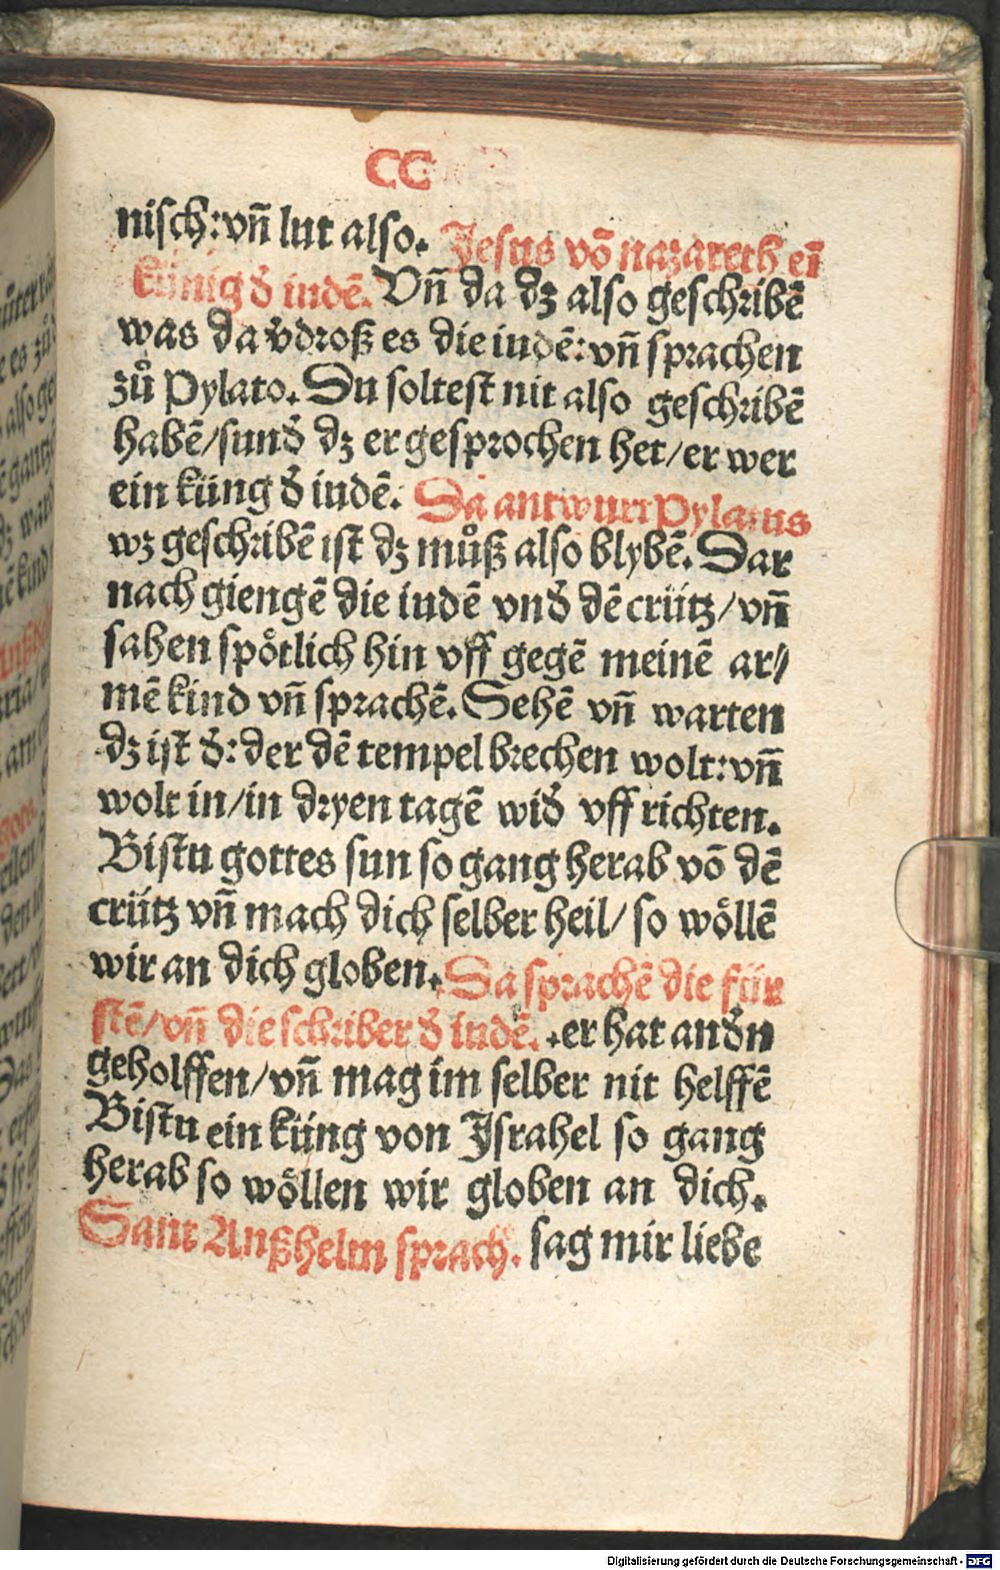 CC
nisch: vñ lut also. Jesus võ nazareth eī
künig d̄ iudē. Vñ da dz also geschribē
was da v̄droß es die iudē: vñ sprachen
zů Pylato. Du soltest nit also geschribē
habē/sund̄ dz er gesprochen het/er wer
ein küng d̄ iudē. Da antwurt Pylatus
wz geschribē ist dz můß also blybē. Dar
nach giengē die iudē vnd̄ dē crütz/vñ
sahen spötlich hin vff gegē meinē ar/
mē kind vñ sprachē. Sehē vñ warten
dz ist d̄: der dē tempel brechen wolt: vñ
wolt in/in dryen tagē wid̄ vff richten.
Bistu gottes sun so gang herab võ dē
crütz vñ mach dich selber heil/ so wöllē
wir an dich globen. Da sprachē die für
stē/vñ die schriber d̄ iudē. er hat and̄n
geholffen/vñ mag im selber nit helffē
Bistu ein küng von Israhel so gang
herab so wöllen wir globen an dich.
Sant Anßhelm sprach. sag mir liebe
Digitalisierung gefördert durch die Deutsche Forschungsgemeinschaft - DFG